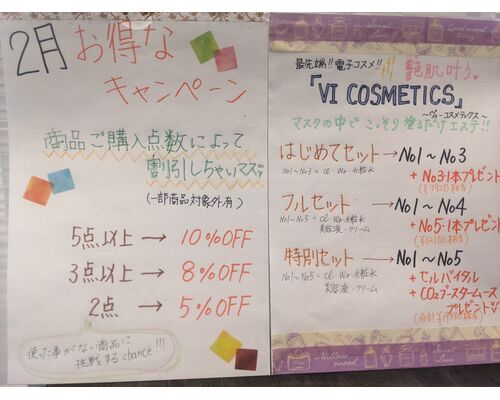 2月 お得な
キャンペーン
商品ご購入点数によって
割引しちゃいマス
(一部商品対象外有)
5点以上 → 10%OFF
3点以上 → 8%OFF
2点 → 5%OFF
使った事がない商品に
挑戦するchance!!!
最先端!!電子コスメ!!
艶肌叶う
「VI COSMETICS」
～ヴィ・コスメティクス～
マスクの中でこっそり塗るだけエステ!!
はじめてセット → No1～No3
No1～No3=cl・Wa・化粧水
+ No3・1本プレゼント
フルセット → No1～No4
No1～No5=cl・Wa・化粧水
美容液・クリーム
+ No5・1本プレゼント
(¥12100相当)
特別セット → No1～No5
No1～No5=cl・Wa・化粧水
美容液・クリーム
+ セルバイタル
+ CO2ブースタームース
プレゼント